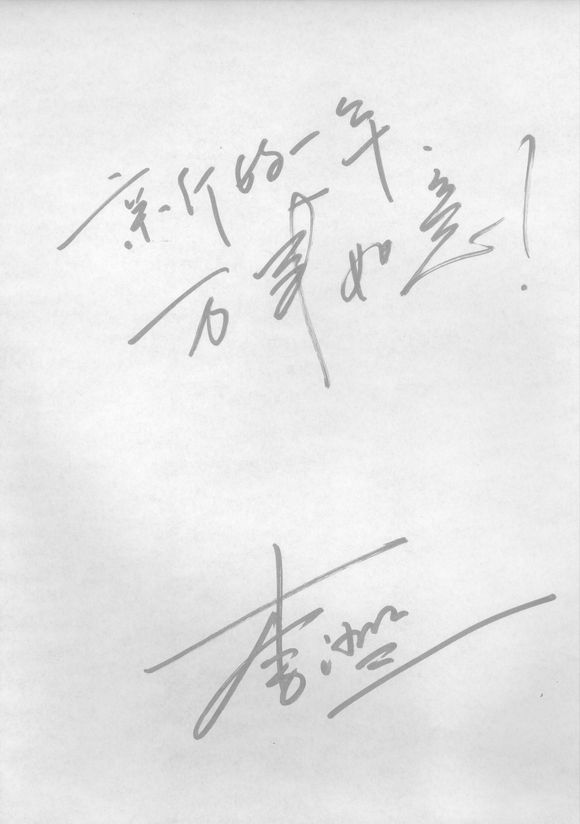 新的一年
万事如意!
李